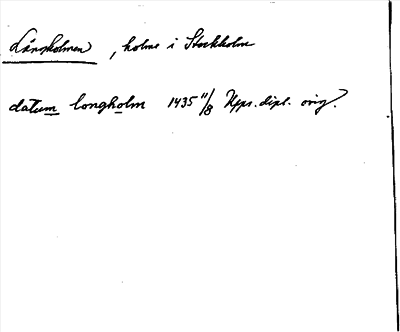 Långholmen, holme i Stockholm
datum longholm 1435 11/8 Upps. dipl. orig.